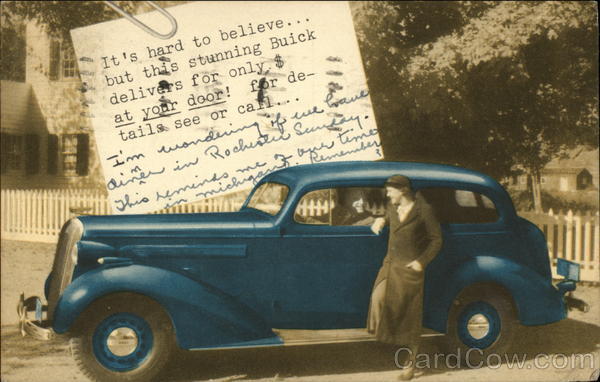 It's hard to believe...
but this stunning Buick
delivers for only $
at your door! for de-
tails see or call...
I'm wondering if we have
dinner in Rochester Sunday.
This reminds me of our time
in Michigan. Remember
CardCow.com